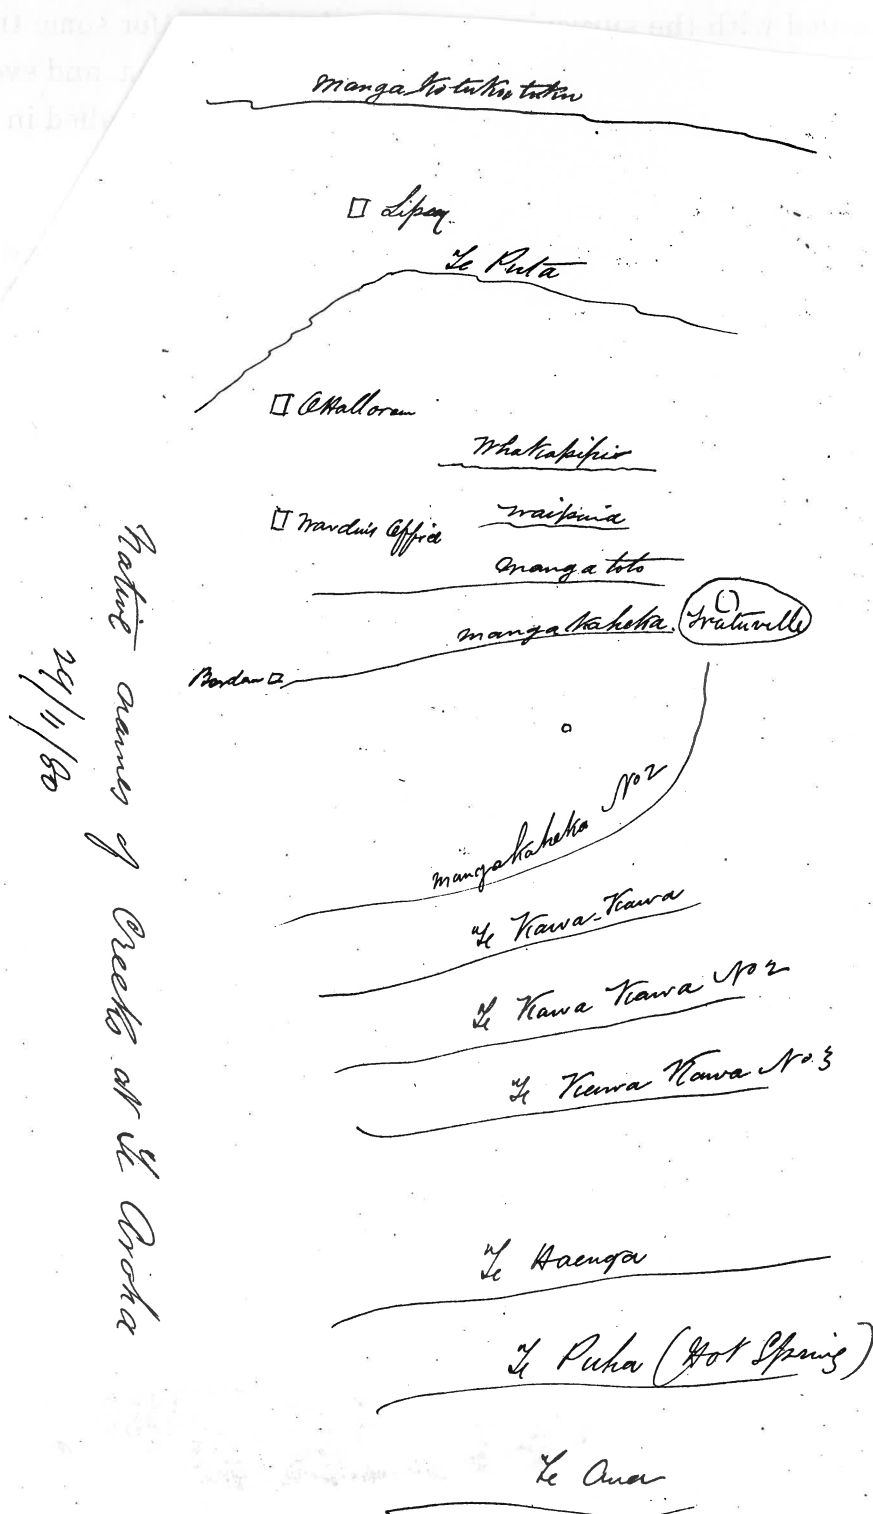 Manga Kotukutuku
Lipsey
Te Puta
O'Halloran
Whakapipi
Wardens Office
Waipuia
Mangatoto
Mangakaheka
Bordan
Mangakaheka No 2
Te Kawa-Kawa
Te Kawa Kawa No 2
Te Kawa Kawa No. 3
Te Haenga
Te Puha (Hot Spring)
Te
Native names of Creeks at Te Aroha
29/11/80